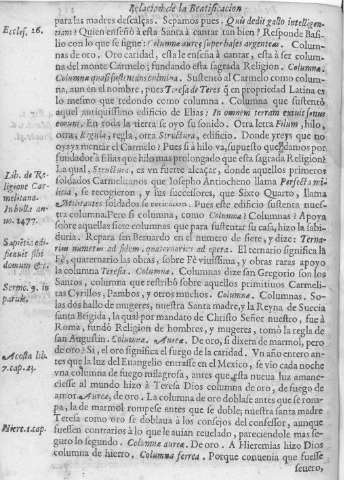 Relacion de la Beatificacion
para las madres descalças. Sepamos pues. Quis dedit gallo intelligen-
Eccles. 26.
tiam? Quien enseñò à esta Santa à cantar tan bien? Responde Basi-
lio con lo que se sigue: Columnæ aureæ super bases argenteas. Colum-
nas de oro. Oro caridad, esta le enseña à cantar, esta à ser colum-
na del monte Carmelo; fundando esta sagrada Religion. Columna.
Columna quasi sustentans culmina. Sustentó al Carmelo como colum-
na, aun en el nombre, pues Teresa de Teres q̃ en propiedad Latina es
lo mesmo que redondo como columna. Columna que sustentò
aquel antiquissimo edificio de Elias: In omnem terram exiuit sonus
eorum. En toda la tierra se oyo su sonido. Otra letra Filum, hilo,
otra, Regula, regla, otra Structura, edificio. Donde yreys que no
oyays mentar el Carmelo? Pues si à hilo va, supuesto que damos por
fundador à Elias que hilo mas prolongado que esta sagrada Religion?
La qual, Structura, es vn fuerte alcaçar, donde aquellos primeros
Lib. de Re-
ligione Car-
melitana.
In bulla an-
no. 1477.
soldados Carmelitanos que Iosepho Antiocheno llama Perfecti mi-
, se recogieron, y sus successores, que Sixto Quarto, llama
Militantes soldados se retiraron. Pues este edificio sustenta nues-
tra columna. Pero si columna, como Columnæ? Columnas? Apoya
sobre aquellas siete columnas que para sustentar su casa, hizo la sabi-
Sapiẽtia ædi-
ficauit sibi
domum &c.
duria. Repara san Bernardo en el numero de siete, y dize: Terna-
rium numerum ad fidem, quaternarios ad opera. El ternario significa la
Fè, quaternario las obras, sobre Fè viuissima, y obras raras apoyo
Sermo. 9. in
paruis.
la columna Teresa. Columna. Columnas dize san Gregorio son los
Santos, columna que restribò sobre aquellos primitiuos Carmeli-
tas Cyrillos, Pambos, y otros muchos Columnæ. Columnas. So-
las dos hallo de mugeres, nuestra Santa madre, y la Reyna de Suecia
santa Brigida, la qual por mandato de Christo Señor nuestro, fue à
Roma, fundò Religion de hombres, y mugeres, tomò la regla de
san Augustin. Columna. Aureæ. De oro, si dixera de marmol, pero
de oro? Si, el oro significa el fuego de la caridad. Vn año entero an-
Acosta lib.
7. cap. 23.
tes que la luz del Euangelio entrasse en el Mexico, se vio cada noche
vna columna de fuego milagrosa, antes que esta nueua luz amane-
ciesse al mundo hizo à Teresa Dios columna de oro, de fuego de
amor. Aureæ, de oro. La columna de oro doblase antes que se rom-
pa, la de marmol rompese antes que se doble, nuestra santa madre
Teresa como oro se doblaua à los consejos del confessor, aunque
fuessen contrarios à lo que le auian reuelado, pareciendole mas se-
guro lo segundo. Columna aureæ. De oro. A Hieremias hizo Dios
Hiere. 1. cap.
columna de hierro, Columna ferrea. Porque conuenia que fuesse
seuero,